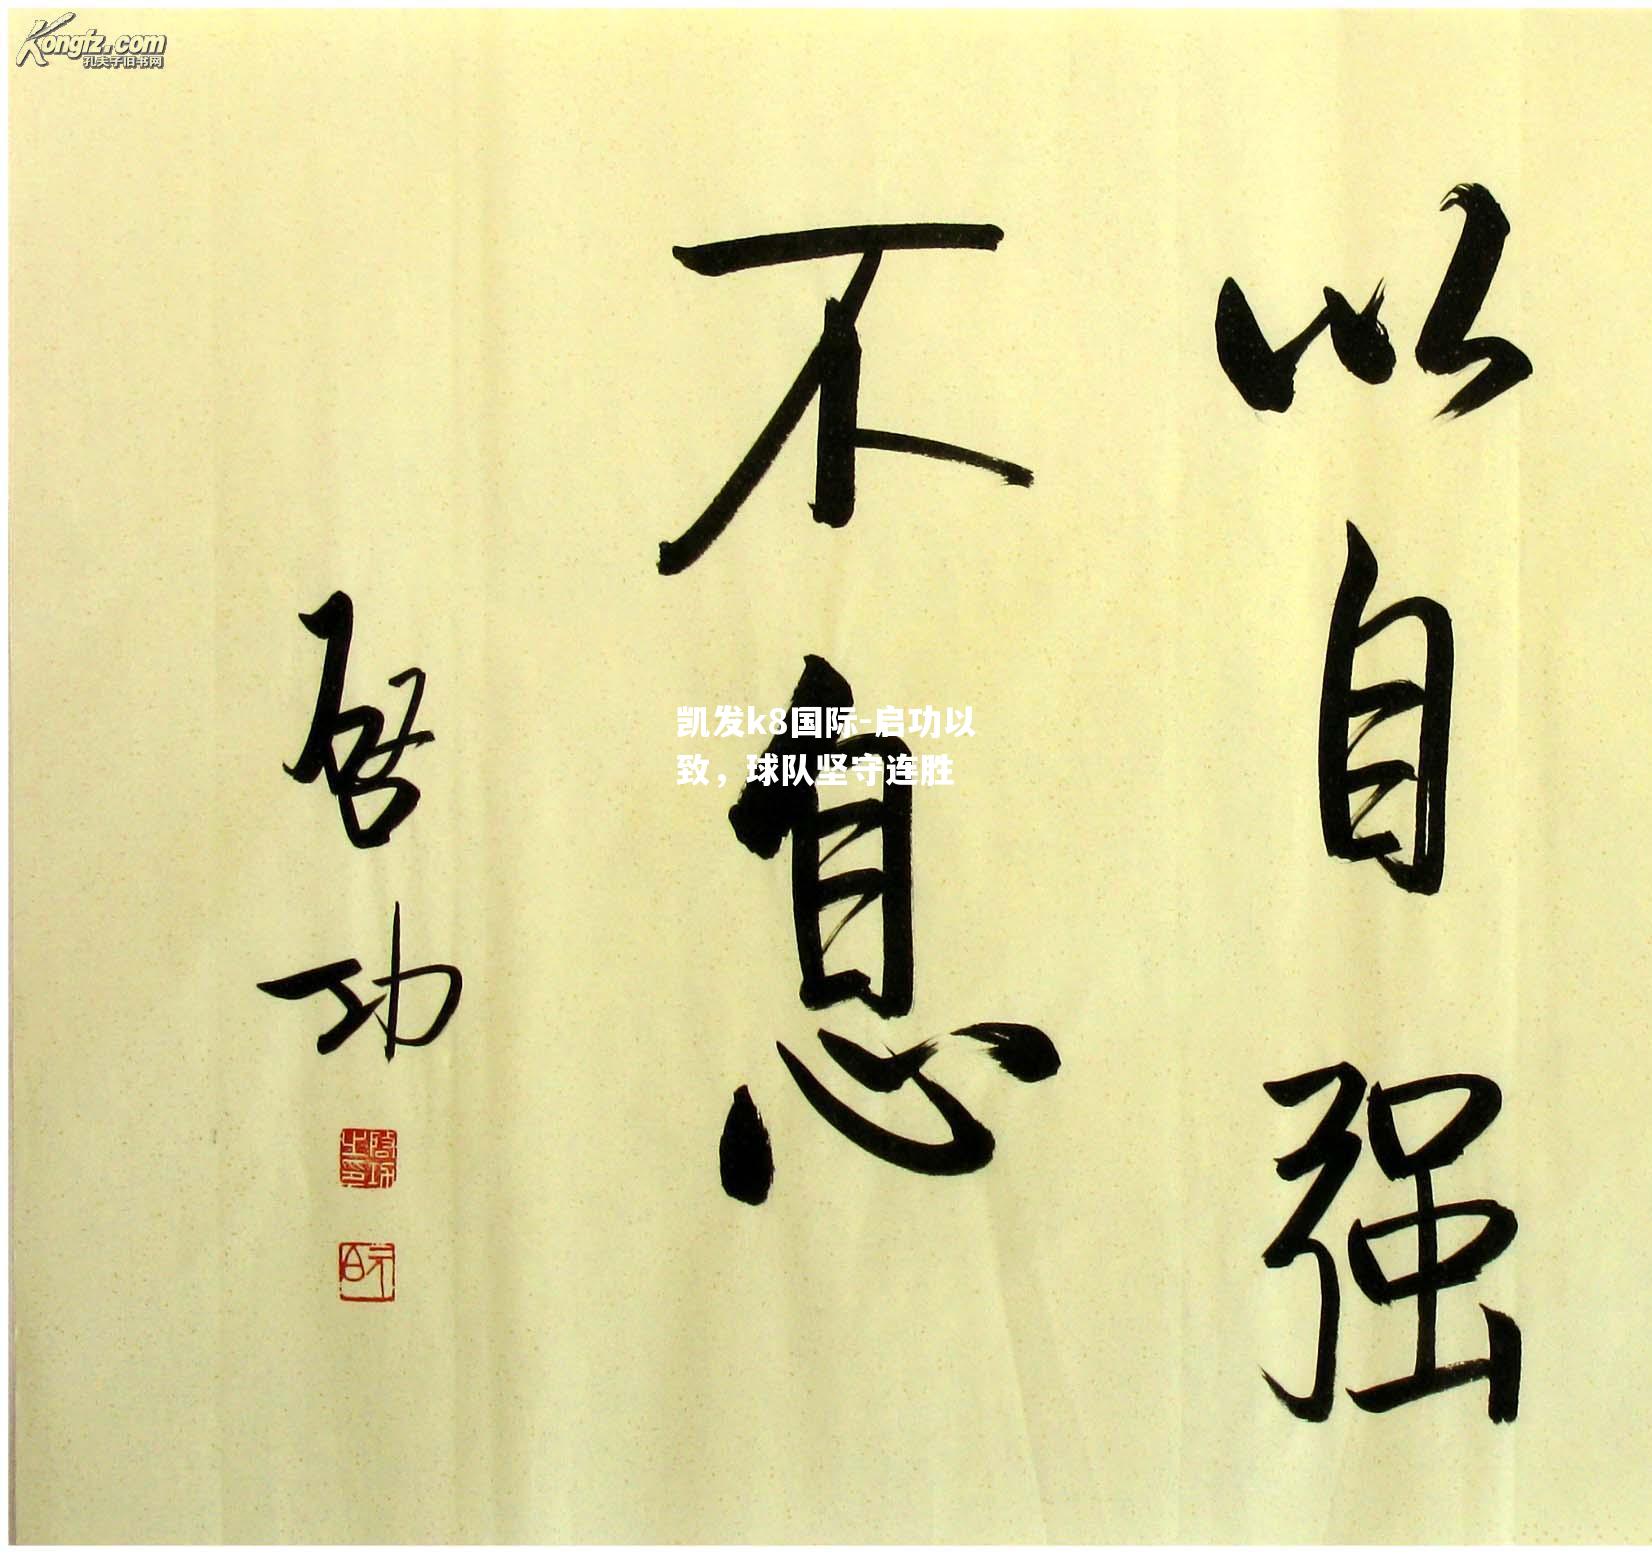 Kongfz.com
孔夫子旧书网
以自强
不息
启功
启功之印
凯发k8国际-启功以
致，球队坚守连胜